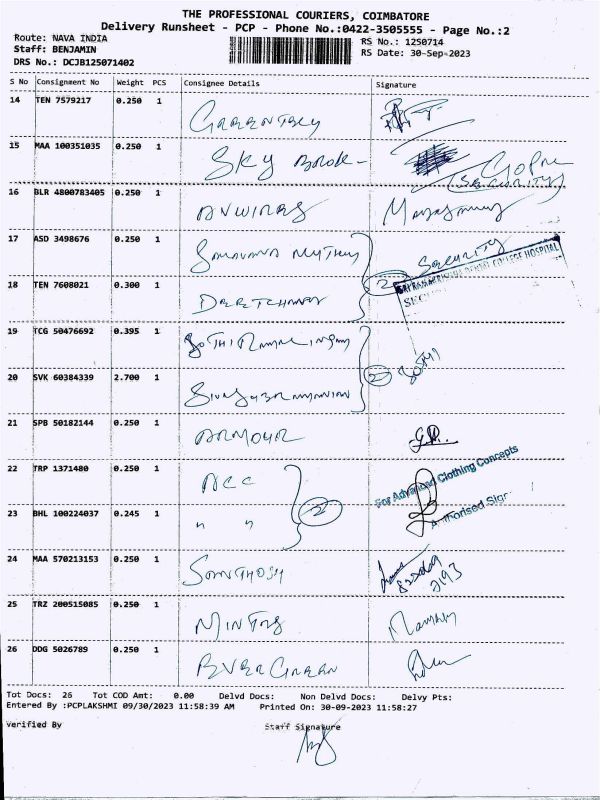 THE PROFESSIONAL COURIERS, COIMBATORE
Delivery Runsheet - PCP - Phone No.:0422-3505555 - Page No.:2
Route: NAVA INDIA
RS No.: 1250714
Staff: BENJAMIN
RS Date: 30-Sep-2023
DRS No.: DCJB125071402
S No Consignment No Weight PCS Consignee Details Signature
14 TEN 7579217 0.250 1
15 MAA 100351035 0.250 1 SKY
GOPU
SECURITY
16 BLR 4800783405 0.250 1
17 ASD 3498676 0.250 1 SECURITY
COLLEGE HOSPITAL
18 TEN 7608021 0.300 1 2
19 TCG 50476692 0.395 1
20 SVK 60384339 2.700 1 2
21 SPB 50182144 0.250 1 ARMOUR
22 TRP 1371480 0.250 1 ACC
For Advanced Clothing Concepts
23 BHL 100224037 0.245 1 " " 2
Authorised Sign
24 MAA 570213153 0.250 1 SOMTHOSH
25 TRZ 200515085 0.250 1
26 DDG 5026789 0.250 1 EVERGREEN
Tot Docs: 26 Tot COD Amt: 0.00 Delvd Docs: Non Delvd Docs: Delvy Pts:
Entered By :PCPLAKSHMI 09/30/2023 11:58:39 AM Printed On: 30-09-2023 11:58:27
Verified By Staff Signature